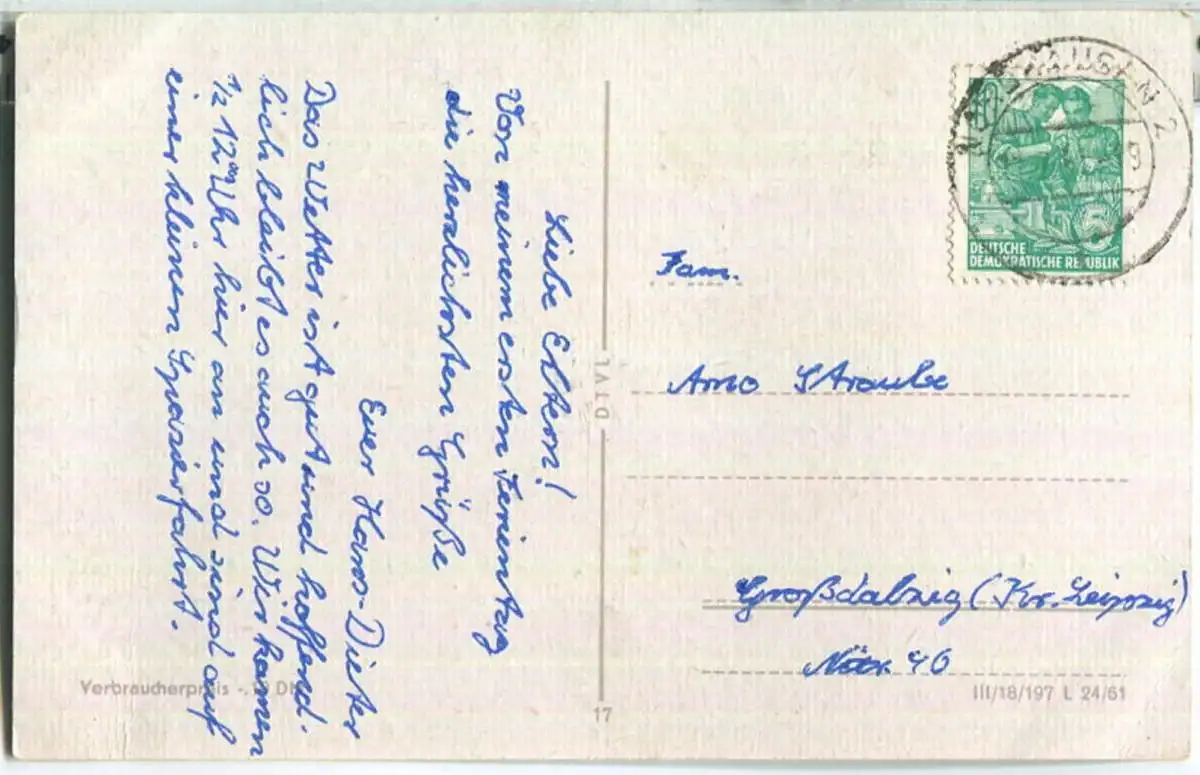 Liebe Eltern!
Von meinem ersten Ferientag
die herzlichsten Grüße
Euer Hans-Dieter
Das Wetter ist gut und hoffend-
lich bleibt es auch so. Wir kamen
½ 12 00 Uhr hier an und sind auf
einer kleinen Spazierfahrt.
Verbraucherpreis -. DM
17
DEUTSCHE
DEMOKRATISCHE REPUBLIK
5
HAUSEN 2
Fam.
Arno Straube
Großdalzig (Kr. Leipzig)
46
III/18/197 L 24/61